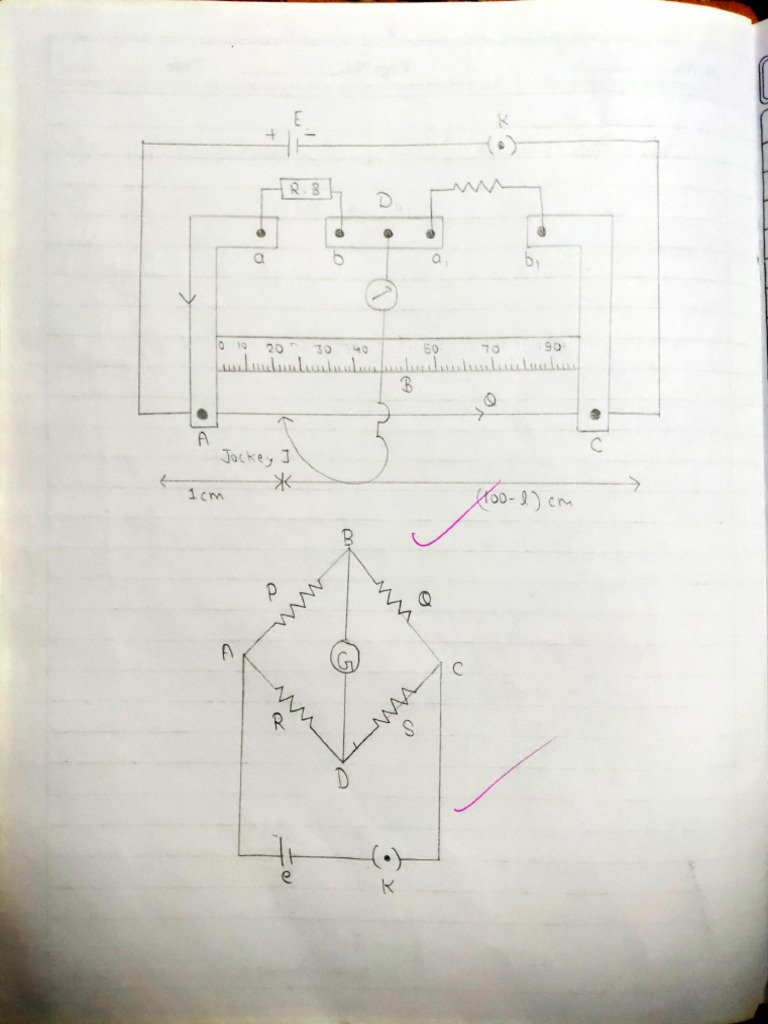 E
+ -
K
R.B
D
a b a₁ b₁
0 10 20 30 40 60 70 90
B
Q
A
C
Jockey J
1cm
(100-l) cm
B
P
Q
A
G
C
R
S
D
e
K